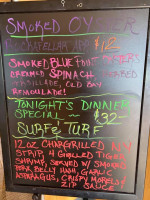 SMOKED OY
ROCKAFELLAR APP $12
SMOKED BLUE POINT OYSTERS
CREAMED SPINACH
PERSILLADE, OLD BAY
REMOULADE!
TONIGHT'S DINNER
SPECIAL ~ $32~
SURF & TURF
12 OZ CHARGRILLED N.Y.
STRIP, 4 GRILLED TIGER
SHRIMP, SERVED W/ SMOKED
PORK BELLY HASH, GARLIC
ASPARAGUS, CRISPY MORELS/
ZIP SAUCE